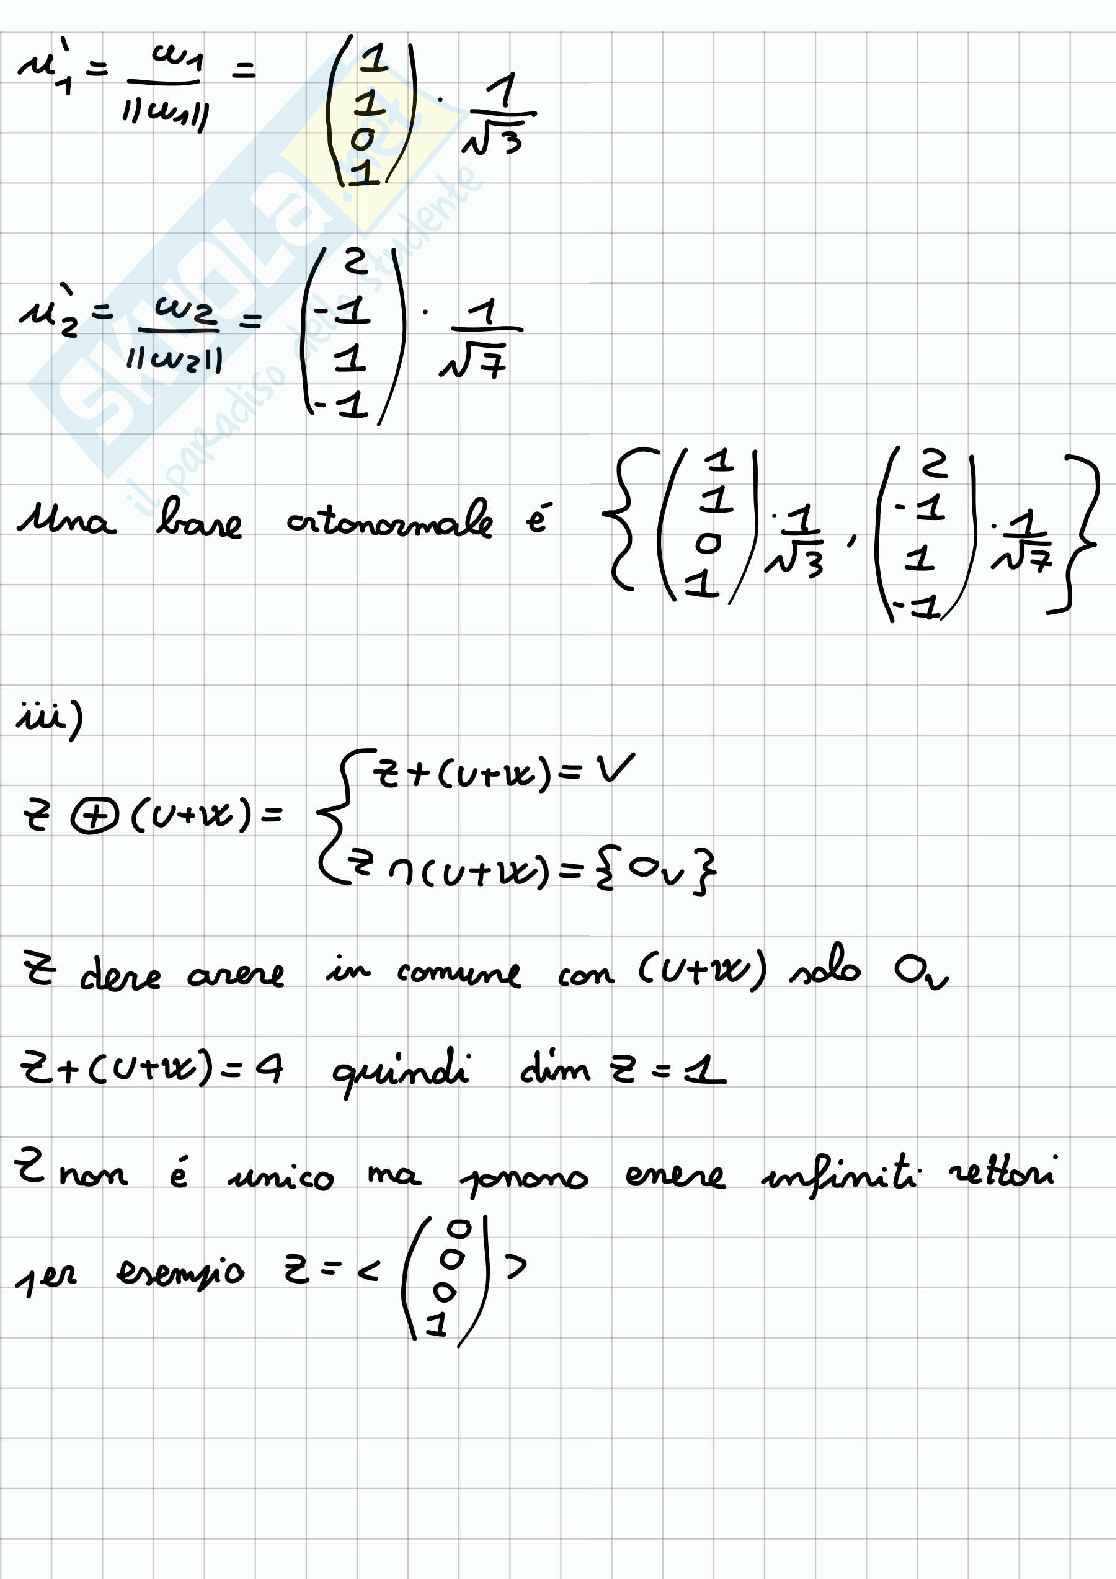 u'₁ = w₁ / ||w₁|| = (1 1 0 1) · 1/√3
u'₂ = w₂ / ||w₂|| = (2 -1 1 -1) · 1/√7
Una base ortonormale é {(1 1 0 1) · 1/√3, (2 -1 1 -1) · 1/√7}
iii)
Z ⊕ (U+W) = { Z+(U+W) = V
Z ∩ (U+W) = {0ᵥ}
Z deve avere in comune con (U+W) solo 0ᵥ
Z+(U+W) = 4 quindi dim Z = 1
Z non é unico ma possono essere infiniti vettori
per esempio Z = < (0 0 0 1) >
SKUOLA.net
il paradiso dello studente